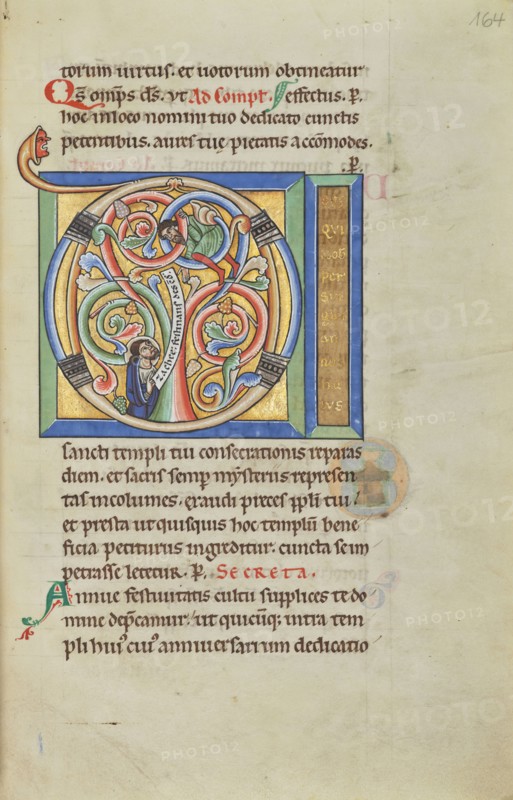 164
torum uirtus. et uotorum obtineatur
Qs omps ds. ut Ad Complt. effectus. P.
hoc in loco nomini tuo dedicato cunctis
petentibus. aures tuę pietatis accōmodes.
P.
D
QVI
per
zachee. festinans des c̄d.
sancti templi tui consecrationis reparas
diem. et sacris semp mysteriis represen
tas incolumes. exaudi preces ppli tui.
et presta ut quisquis hoc templū bene
ficia petiturus ingreditur. cuncta se im
petrasse letetur. P. SECRETA.
Annue festiuitatis cultu supplices te do
mine depcamur. ut quicūq; intra tem
pli hui' cui' anniuersarium dedicatio
PHOTO12